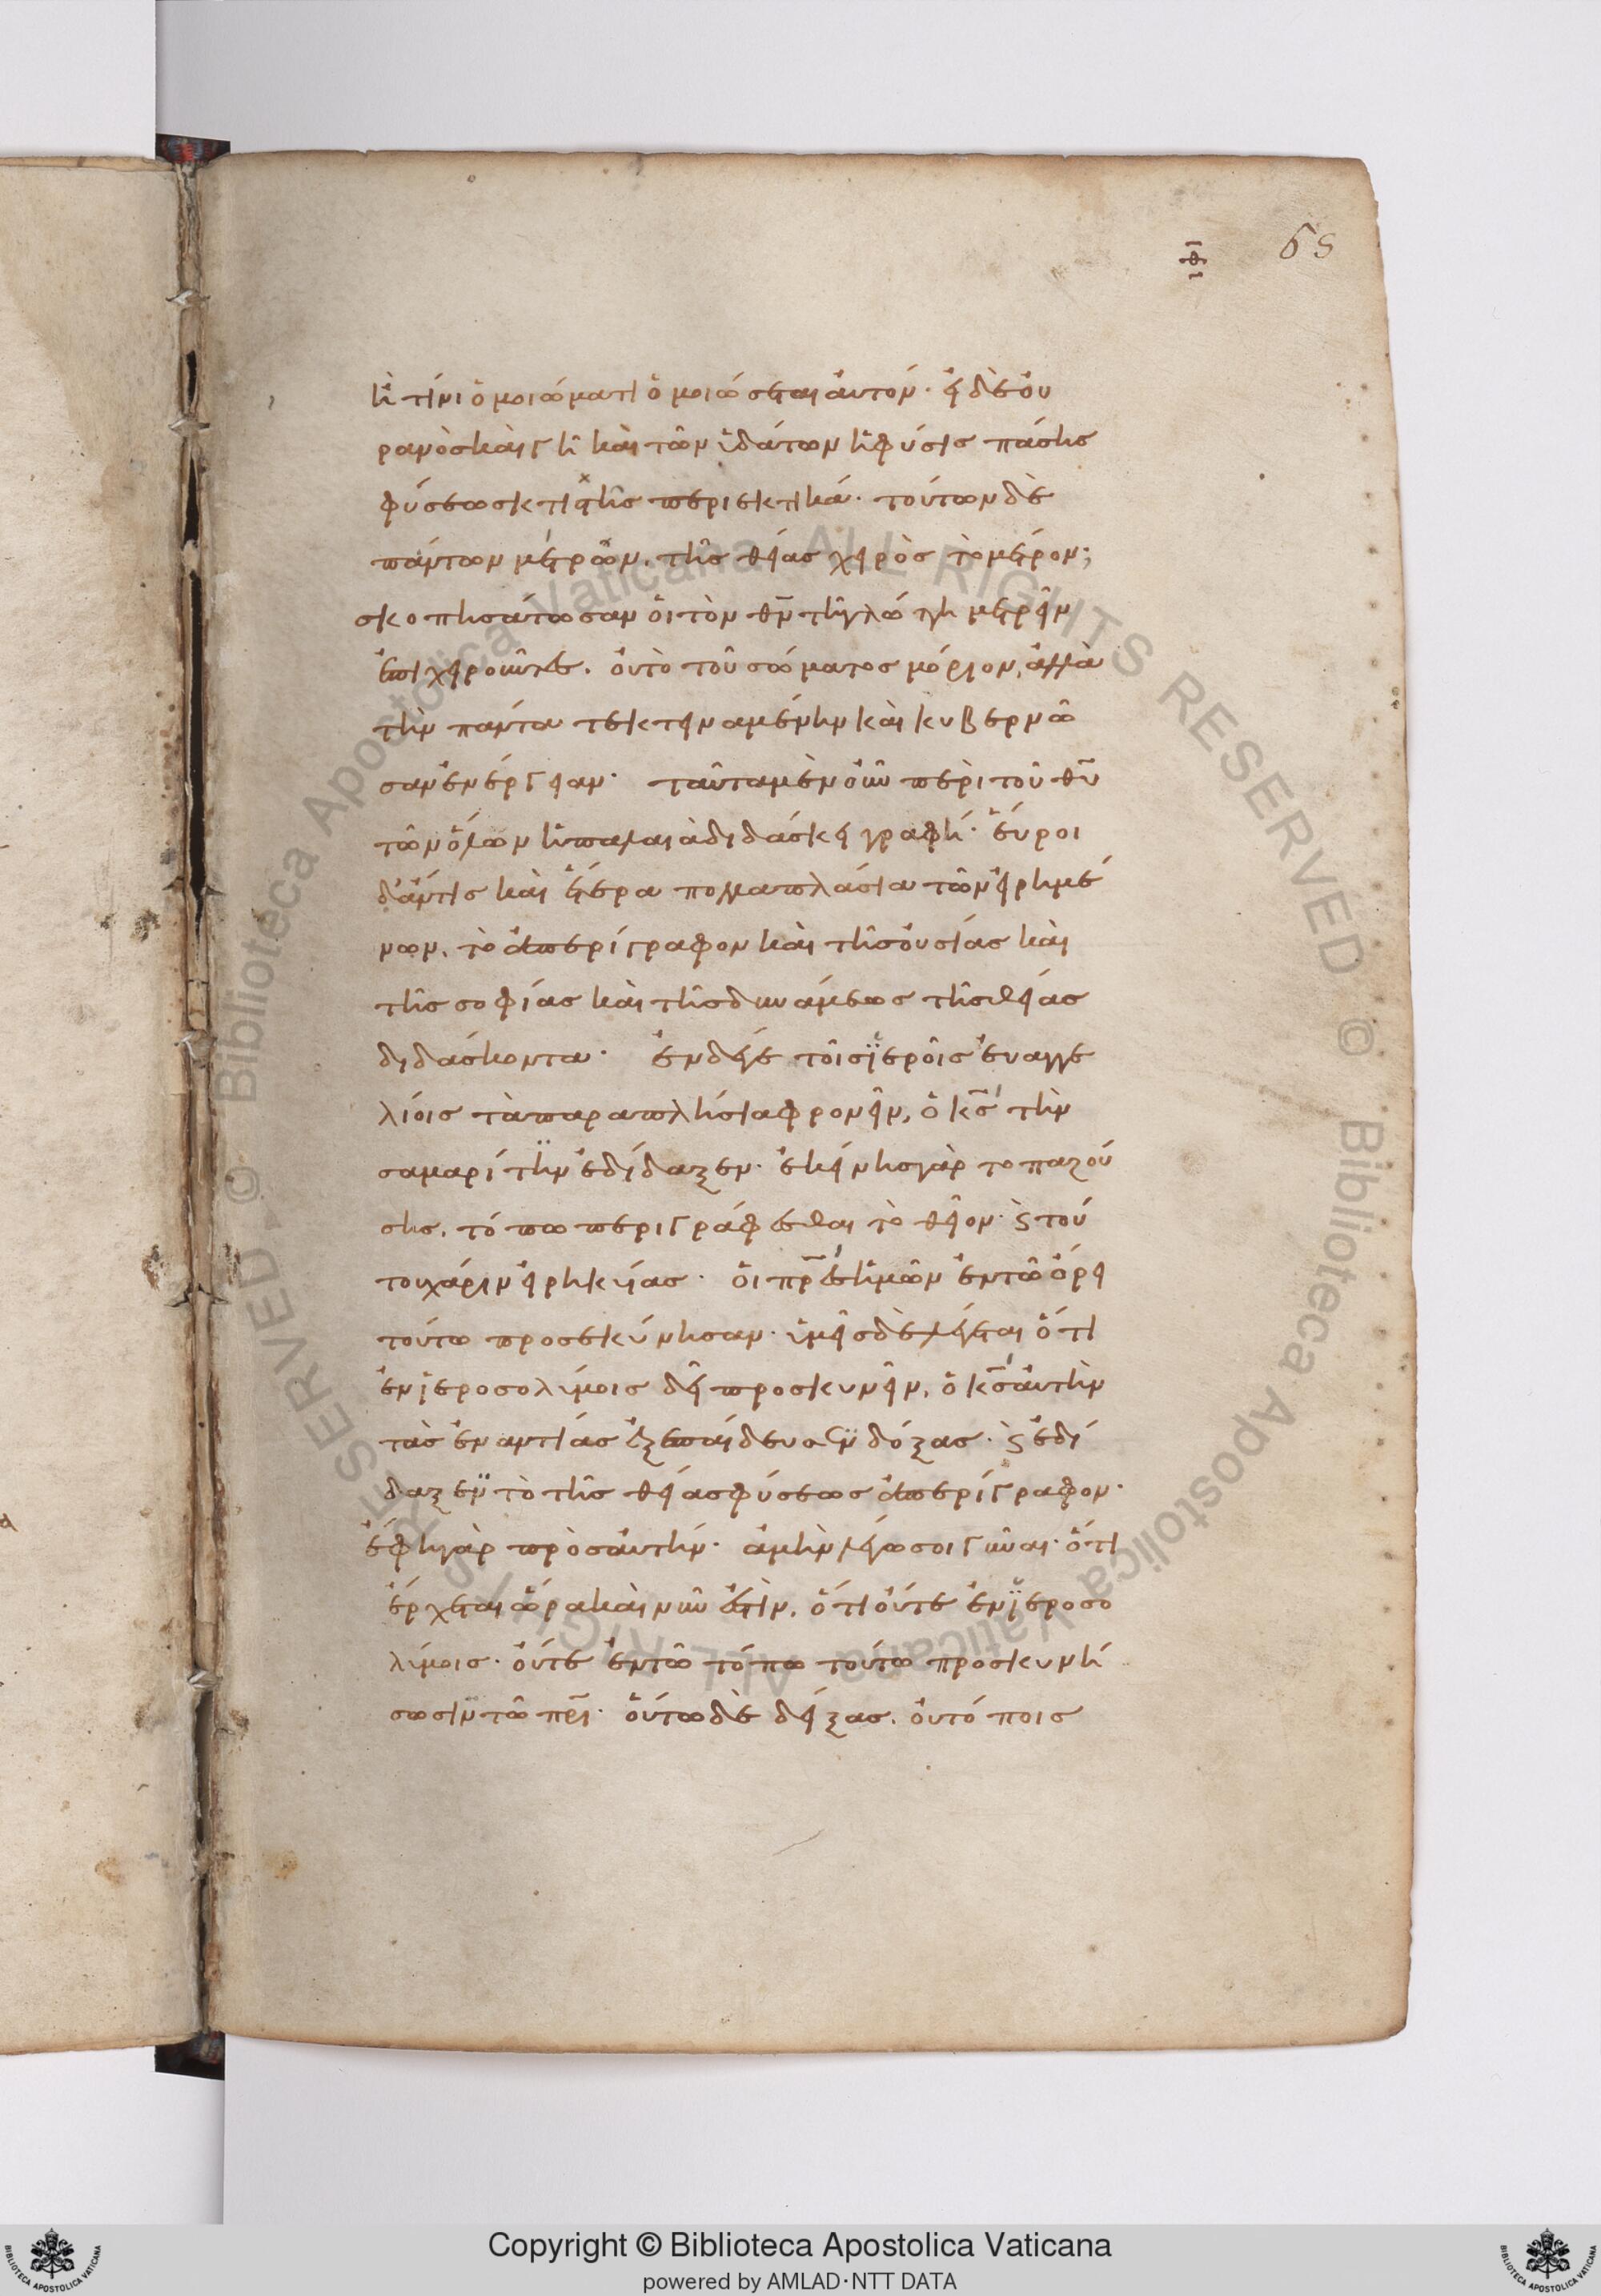 θ
65
ἢ τίνι ὁμοιώματι ὁμοιώσεται αὐτόν· εἰ δὲ οὐ
ρανὸς καὶ γῆ καὶ τῶν ὑδάτων ἡ φύσις πάσης
φύσεως κτιστῆς περιεκτικά· τούτων δὲ
πάντων μέτρον, τῆς θείας χειρὸς τὸ μέτρον;
σκοπησάτωσαν οἱ τὸν θν τῆ γλώττη μετρεῖν
ἐπιχειροῦντες. οὐ τὸ τοῦ σώματος μόριον, ἀλλὰ
τὴν πάντα τεκτηναμένην καὶ κυβερνῶ
σαν ἐνέργειαν· ταῦτα μὲν οὖν περὶ τοῦ θυ
τῶν ὅλων ἡ παλαιὰ διδάσκει γραφή· εὕροι
δ' ἄν τις καὶ ἕτερα πολλαπλάσια τῶν εἰρημέ
νων, τὸ ἀπερίγραφον καὶ τῆς οὐσίας καὶ
τῆς σοφίας καὶ τῆς δυνάμεως τῆς θείας
διδάσκοντα· ἐν δέ γε τοῖς ἱεροῖς εὐαγγε
λίοις τὰ παραπλήσια φρονεῖν, ὁ κς τὴν
σαμαρίτην ἐδίδαξεν· ἐκείνης γὰρ τοπαζού
σης, τόπω περιγράφεσθαι τὸ θεῖον· ϛ τού
του χάριν εἰρηκυίας· οἱ πρες ἡμῶν ἐν τῶ ὄρει
τούτω προσεκύνησαν· ὑμεῖς δὲ λέγεται ὅτι
ἐν ἱεροσολύμοις δεῖ προσκυνεῖν, ὁ κς αὐτὴν
τὰς ἐναντίας ἐξεπαίδευσεν δόξας· ϛ ἐδί
δαξεν τὸ τῆς θείας φύσεως ἀπερίγραφον·
ἔφη γὰρ πρὸς αὐτήν· ἀμὴν λέγω σοι γύναι· ὅτι
ἔρχεται ὥρα καὶ νῦν ἐστὶν, ὅτι οὔτε ἐν ἱεροσο
λύμοις· οὔτε ἐν τῶ τόπω τούτω προσκυνή
σωσιν τῶ πρι· οὕτω δὲ δείξας, οὐ τόποις
Copyright © Biblioteca Apostolica Vaticana
powered by AMLAD·NTT DATA